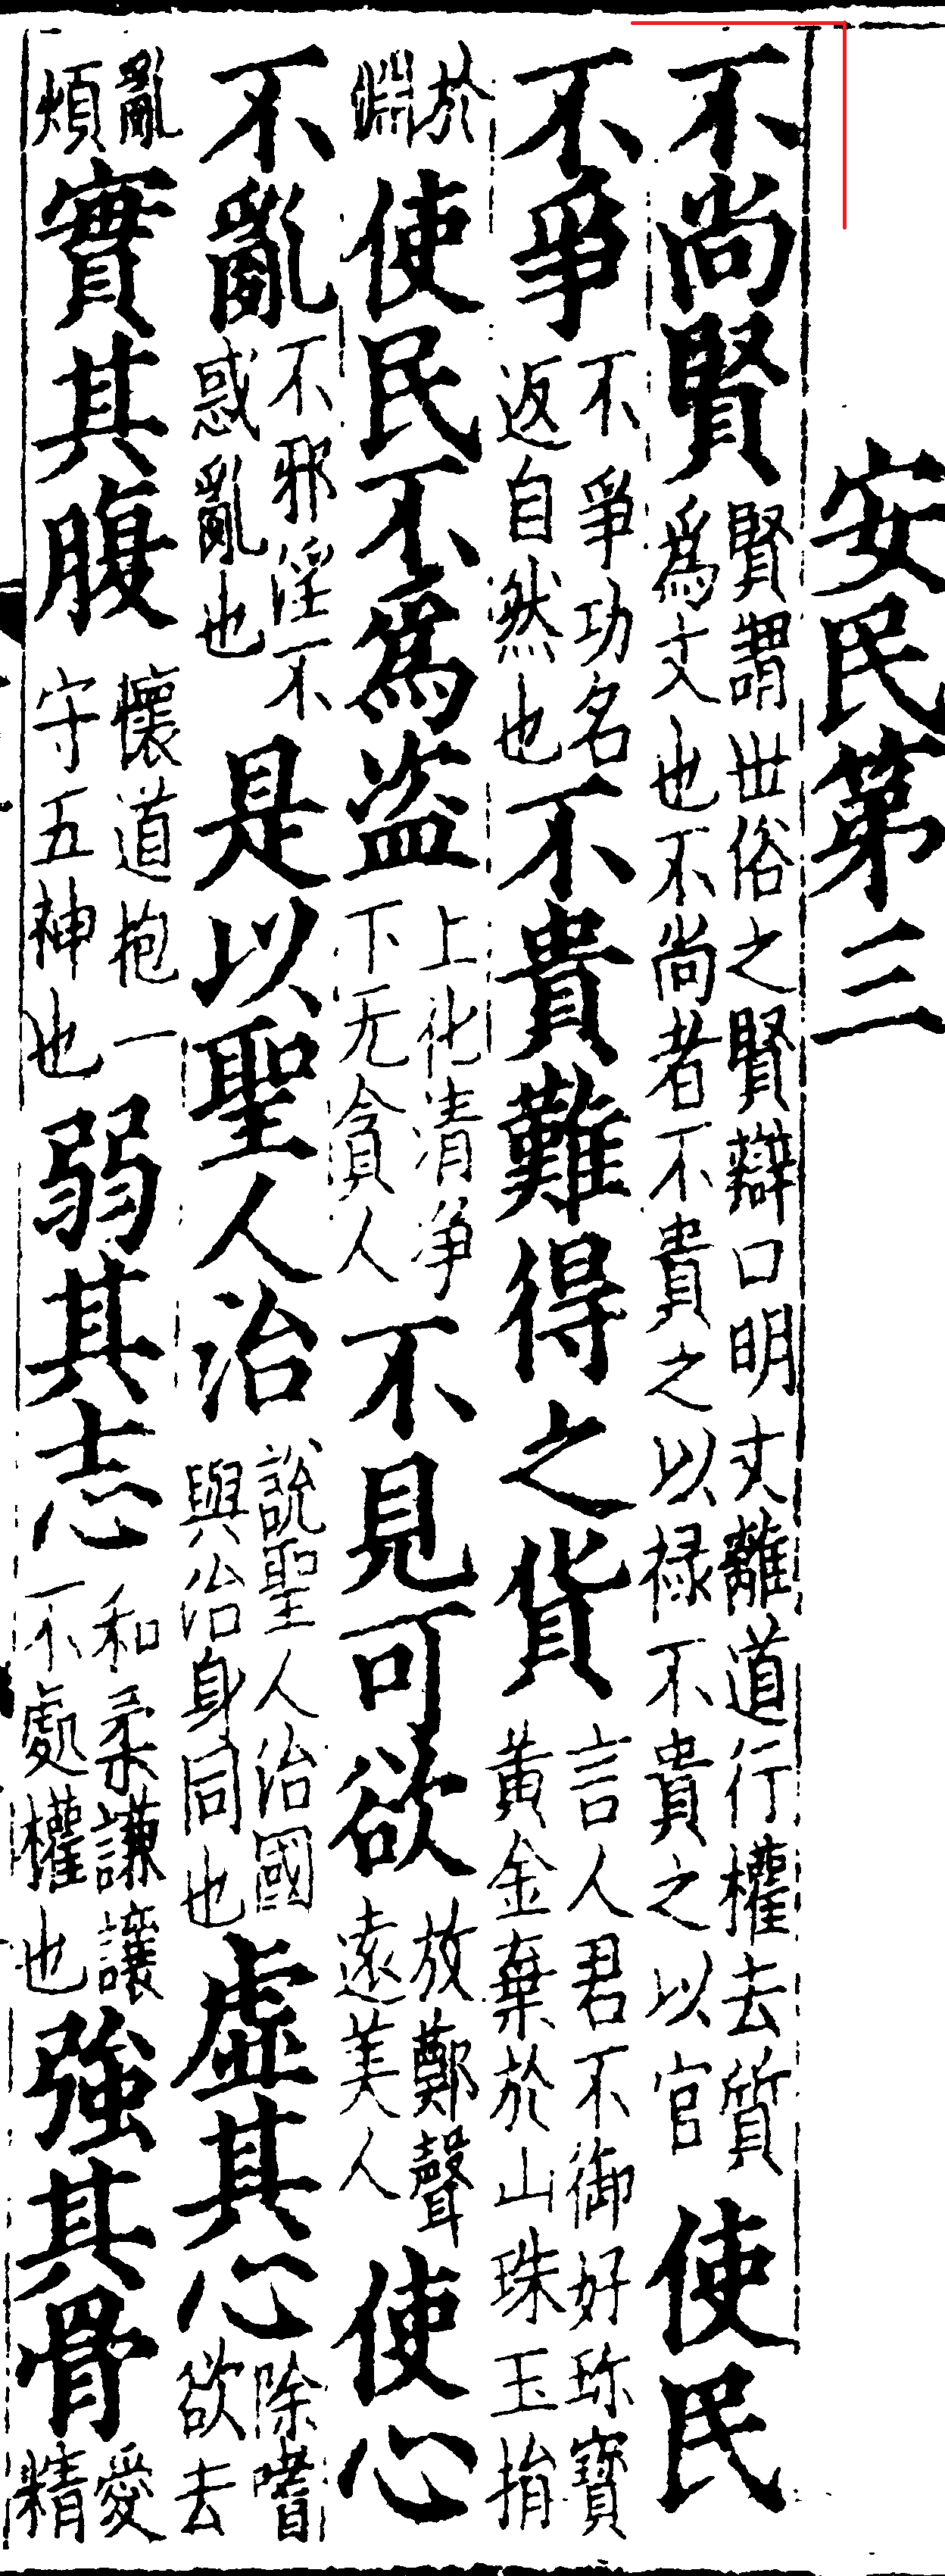 安民第三
不尚賢賢謂丗俗之賢辯口明文離道行權去質爲文也不尚者不貴之以禄不貴之以官使民
不爭不爭功名返自然也不貴難得之貨言人君不御好珎寶黄金棄於山珠玉捐
於淵使民不爲盗上化清净下无貪人不見可欲放鄭聲遠美人使心
不亂不邪淫不惑亂也是以聖人治說聖人治國與治身同也虛其心除嗜欲去
亂煩實其腹懷道抱一守五神也弱其志和柔謙讓不處權也強其骨愛精